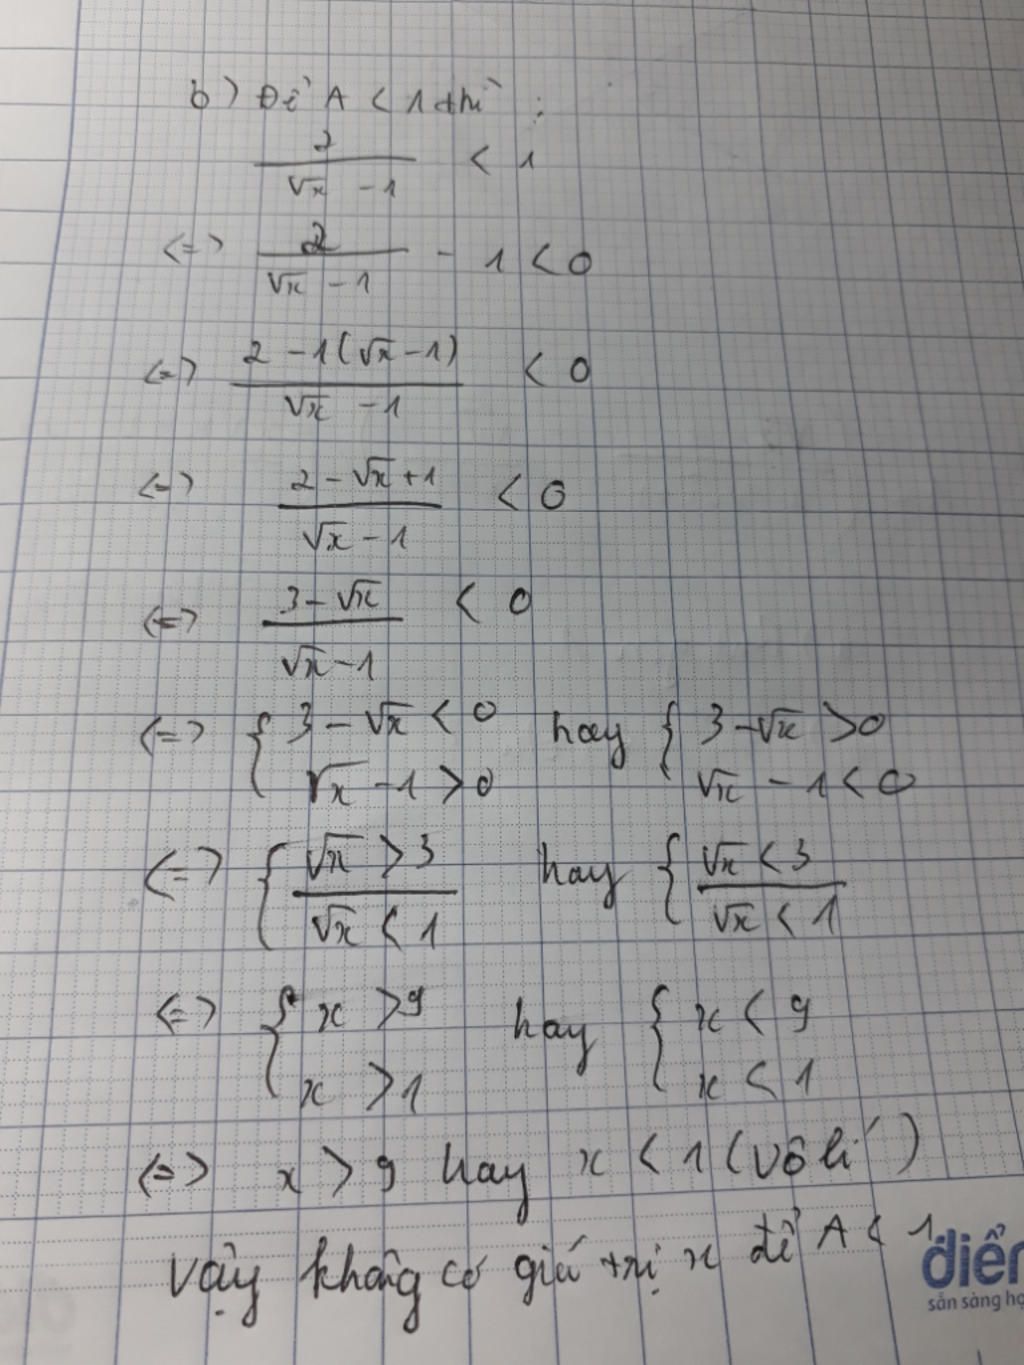 b) Để A < 1 thì :
2/(√x - 1) < 1
<=> 2/(√x - 1) - 1 < 0
<=> (2 - 1(√x - 1))/(√x - 1) < 0
<=> (2 - √x + 1)/(√x - 1) < 0
<=> (3 - √x)/(√x - 1) < 0
<=> { 3 - √x < 0 hay { 3 - √x > 0
√x - 1 > 0 √x - 1 < 0
<=> { √x > 3 hay { √x < 3
√x < 1 √x < 1
<=> { x > 9 hay { x < 9
x > 1 x < 1
<=> x > 9 hay x < 1 (vô lí)
Vậy không có giá trị x để A < 1
điểm
sẵn sàng họ